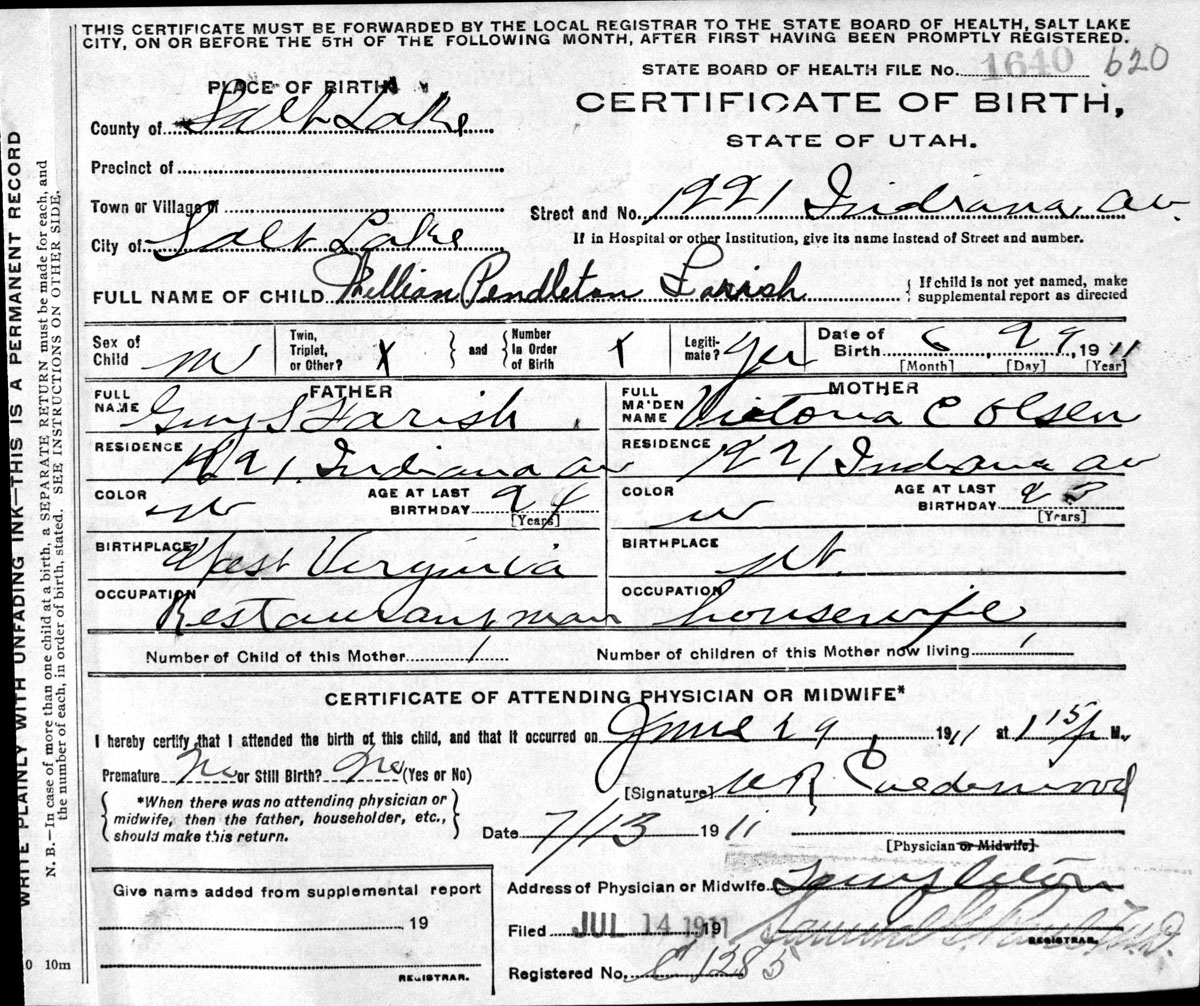 THIS CERTIFICATE MUST BE FORWARDED BY THE LOCAL REGISTRAR TO THE STATE BOARD OF HEALTH, SALT LAKE
CITY, ON OR BEFORE THE 5TH OF THE FOLLOWING MONTH, AFTER FIRST HAVING BEEN PROMPTLY REGISTERED.
STATE BOARD OF HEALTH FILE No. 1640 620
PLACE OF BIRTH
CERTIFICATE OF BIRTH,
STATE OF UTAH.
County of Salt Lake
Precinct of
Town or Village of
Street and No. 1221 Indiana av.
City of Salt Lake
If in Hospital or other Institution, give its name instead of Street and number.
FULL NAME OF CHILD William Pendleton Farish
{ If child is not yet named, make
supplemental report as directed
Sex of Child M
Twin, Triplet, or Other? X
and
Number In Order of Birth X
Legiti-mate? Yes
Date of Birth 6, 29, 1911
[Month] [Day] [Year]
FATHER
FULL NAME Guy S Farish
MOTHER
FULL MAIDEN NAME Victoria C Olsen
RESIDENCE 1221 Indiana av
RESIDENCE 1221 Indiana av
COLOR W
AGE AT LAST BIRTHDAY 24
[Years]
COLOR W
AGE AT LAST BIRTHDAY 23
[Years]
BIRTHPLACE West Virginia
BIRTHPLACE Ut.
OCCUPATION Restaurant man
OCCUPATION housewife
Number of Child of this Mother 1
Number of children of this Mother now living 1
CERTIFICATE OF ATTENDING PHYSICIAN OR MIDWIFE*
I hereby certify that I attended the birth of this child, and that it occurred on June 29, 1911 at 1 15 P M.
Premature No or Still Birth? No (Yes or No)
[Signature] W R Calderwood
{ *When there was no attending physician or
midwife, then the father, householder, etc.,
should make this return. }
Date 7/13 1911
[Physician or Midwife]
Give name added from supplemental report
19
REGISTRAR.
Address of Physician or Midwife Templeton
Filed JUL 14 1911 191
REGISTRAR.
Registered No. 1285
WRITE PLAINLY WITH UNFADING INK—THIS IS A PERMANENT RECORD
N. B.—In case of more than one child at a birth, a SEPARATE RETURN must be made for each, and
the number of each, in order of birth, stated. SEE INSTRUCTIONS ON OTHER SIDE.
10m